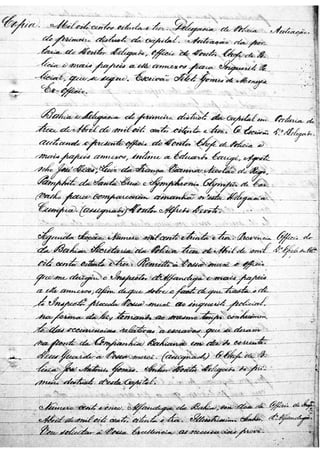 Copia. Mil oito centos oitenta e tres. Delegacia de Policia Autoação.
do primeiro districto da capital. Autoação da por-
taria do Doutor Delegado, officio do Doutor Chefe de Po-
licia e mais papeis a elle annexos para Inquerito Po-
licial, que se segue. Escrivão Gomes de
Ex-officio.
Bahia e Delegacia do primeiro districto da capital em Portaria do
treze de Abril de mil oito centos oitenta e tres. O Escrivão Dr. Delegado.
autuando o presente officio do Doutor Chefe de Policia e
mais papeis annexos, intime a Eduardo Agosti-
nho José Dias, de França
de Sant'Anna e Symphronio Olympio de Car-
valho para comparecerem amanhã n'esta Delegacia
Cumpra (assignado) Doutor
Segunda Secção. Numero mil cento e trinta e tres. Provincia Officio do
da Bahia Secretaria da Policia, treze de Abril de mil Dr. Chefe de Pol.
oito cento oitenta e tres. Remetto á Vossa mercê o officio
que me dirigio o Inspector d'Alfandega e mais papeis
a elle annexos, afim de que sobre o facto de que trata o di-
to Inspector proceda Vossa mercê ao inquerito policial,
na forma da lei, tomando ao mesmo tempo conhecimen-
to das occurrencias relativas a que se deram
na ponte da Companhia Bahiana em dez do corrente.
Deus Guarde a Vossa mercê. (assignado) O Chefe de Po-
licia José Antonio Gomes. Senhor Doutor Delegado do pri-
meiro districto desta Capital.
Numero cento e onze. Alfandega da Bahia, em doze de Officio do Inspr.
Abril de mil oito centos oitenta e tres. Illustrissimo Senhor. d'Alfandega.
Vou solicitar á Vossa Excellencia as necessarias provi-